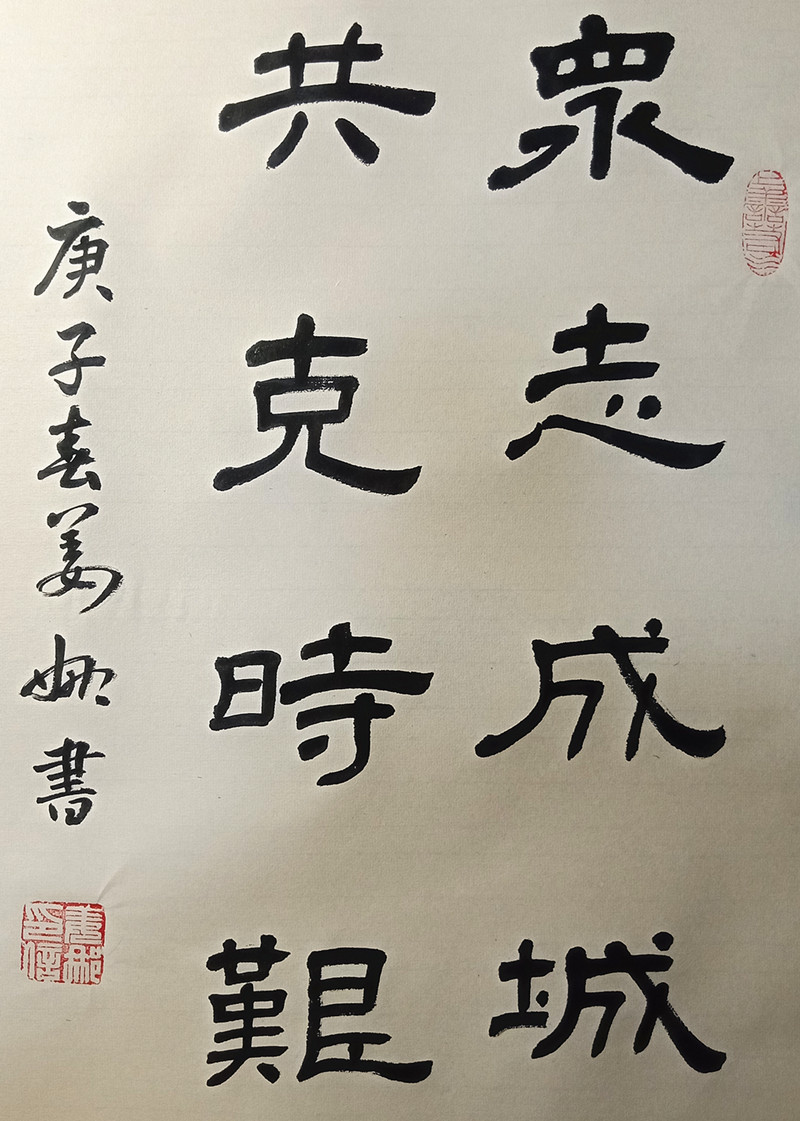 眾志成城
共克時艱
庚子春姜娜書